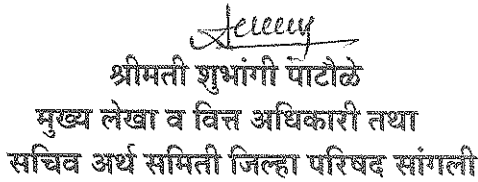 श्रीमती शुभांगी पाटौळे
मुख्य लेखा व वित्त अधिकारी तथा
सचिव अर्थ समिती जिल्हा परिषद सांगली